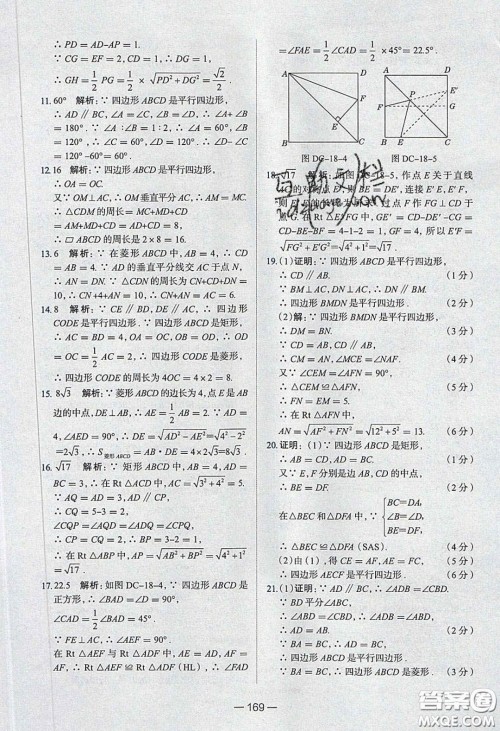 ∴ PD = AD-AP = 1.
∵ CG = EF = 2, CD = 1, ∴ DG = 1.
∴ GH = 1/2 PG = 1/2 × √(PD²+DG²) = √2/2.
11. 60° 解析:∵ 四边形 ABCD 是平行四边形,
∴ AD∥BC, ∠A=∠C, ∠B=∠D, ∴ ∠A+∠B
=180°. ∵ ∠A:∠B=2:1, ∴ ∠A=∠C=
120°, ∠B=∠D=60°, ∴ ∠D=60°, ∴ ∠C-∠D
=120°-60°=60°.
12. 16 解析:∵ 四边形 ABCD 是平行四边形,
∴ OA=OC.
又∵ OM⊥AC, ∴ OM 垂直平分 AC, ∴ AM=MC.
∴ △CDM 的周长=MC+MD+CD
=AM+MD+CD=AD+CD=8,
∴ ▱ABCD 的周长是 2×8=16.
13. 6 解析:∵ 在菱形 ABCD 中, AB=4,
∴ AD=CD=4. ∵ AD 的垂直平分线交 AC 于点 N,
∴ AN=DN. ∵ △CDN 的周长=CN+CD+DN=
10, ∴ CN+4+AN=10, ∴ CN+AN=AC=6.
14. 8 解析:∵ CE∥BD, DE∥AC, ∴ 四边形
CODE 是平行四边形. ∵ 四边形 ABCD 是矩形,
∴ AC=BD=4, OA=OC, OB=OD, ∴ OD=
OC=1/2 AC=2, ∴ 四边形 CODE 是菱形,
∴ 四边形 CODE 的周长为 4OC=4×2=8.
15. 8√3 解析:∵ 菱形 ABCD 的边长为 4, 点 E 是 AB
的中点, DE⊥AB, ∴ AE=1/2 AB=2. ∵ AD=
4, ∠AED=90°, ∴ DE=√(AD²-AE²)=√(4²-2²)
=2√3, ∴ S菱形ABCD=AB·DE=4×2√3=8√3.
16. √17 解析:∵ 矩形 ABCD 中, AB=4, AD=
BC=3, ∴ 在 Rt△ABC 中, AC=√(3²+4²)=5.
∵ AQ=AD=3, AD∥CP,
∴ CQ=5-3=2,
∠CQP=∠AQD=∠ADQ=∠CPQ,
∴ CP=CQ=2, ∴ BP=3-2=1,
∴ 在 Rt△ABP 中, AP=√(AB²+BP²)=√(4²+1²)
=√17.
17. 22.5 解析:如图 DC-18-4, ∵ 四边形 ABCD 是
正方形, ∴ ∠BAD=∠D=90°,
∠CAD=1/2 ∠BAD=45°.
∵ FE⊥AC, ∴ ∠AEF=90°.
在 Rt△AEF 与 Rt△ADF 中, AE=AD, AF=
AF, ∴ Rt△AEF≌Rt△ADF (HL), ∴ ∠FAD
=∠FAE=1/2 ∠CAD=1/2×45°=22.5°.
A D F E B C
图 DC-18-4
A D E' P G F B E C
图 DC-18-5
18. √17
19. (1) 证明:∵ 四边形 ABCD 是平行四边形,
∴ CD∥AB. (1分)
∵ BM⊥AC, DN⊥AC, ∴ DN∥BM,
∴ 四边形 BMDN 是平行四边形. (3分)
(2) 解:∵ 四边形 BMDN 是平行四边形,
∴ DM=BN. (3分)
∵ CD=AB, CD∥AB,
∴ CM=AN, ∠MCE=∠NAF. (4分)
又∵ ∠CEM=∠AFN=90°,
∴ △CEM≌△AFN, (5分)
∴ FN=EM=5.
AN=√(AF²+FN²)=√(12²+5²)=13. (6分)
20. 证明:(1) ∵ 四边形 ABCD 是矩形,
∴ AD=BC, AB=CD. (1分)
又∵ E, F 分别是边 AB, CD 的中点,
∴ BE=DF. (2分)
在△BEC 和△DFA 中, ∵ {BC=DA,
∠B=∠D,
BE=DF,
∴ △BEC≌△DFA (SAS). (4分)
(2) 由(1), 得 CE=AF, AE=FC, (5分)
∴ 四边形 AECF 是平行四边形. (6分)
21. (1) 证明:∵ AD∥BC, ∴ ∠ADB=∠DBC.
∵ BD 平分∠ABC,
∴ ∠ABD=∠DBC, ∴ ∠ABD=∠ADB,
∴ AD=AB. (2分)
∵ AB=BC, ∴ AD=BC,
∴ 四边形 ABCD 是平行四边形.
∵ BA=BC, ∴ 四边形 ABCD 是菱形. (3分)
— 169 —
答案圈
MXQE.COM